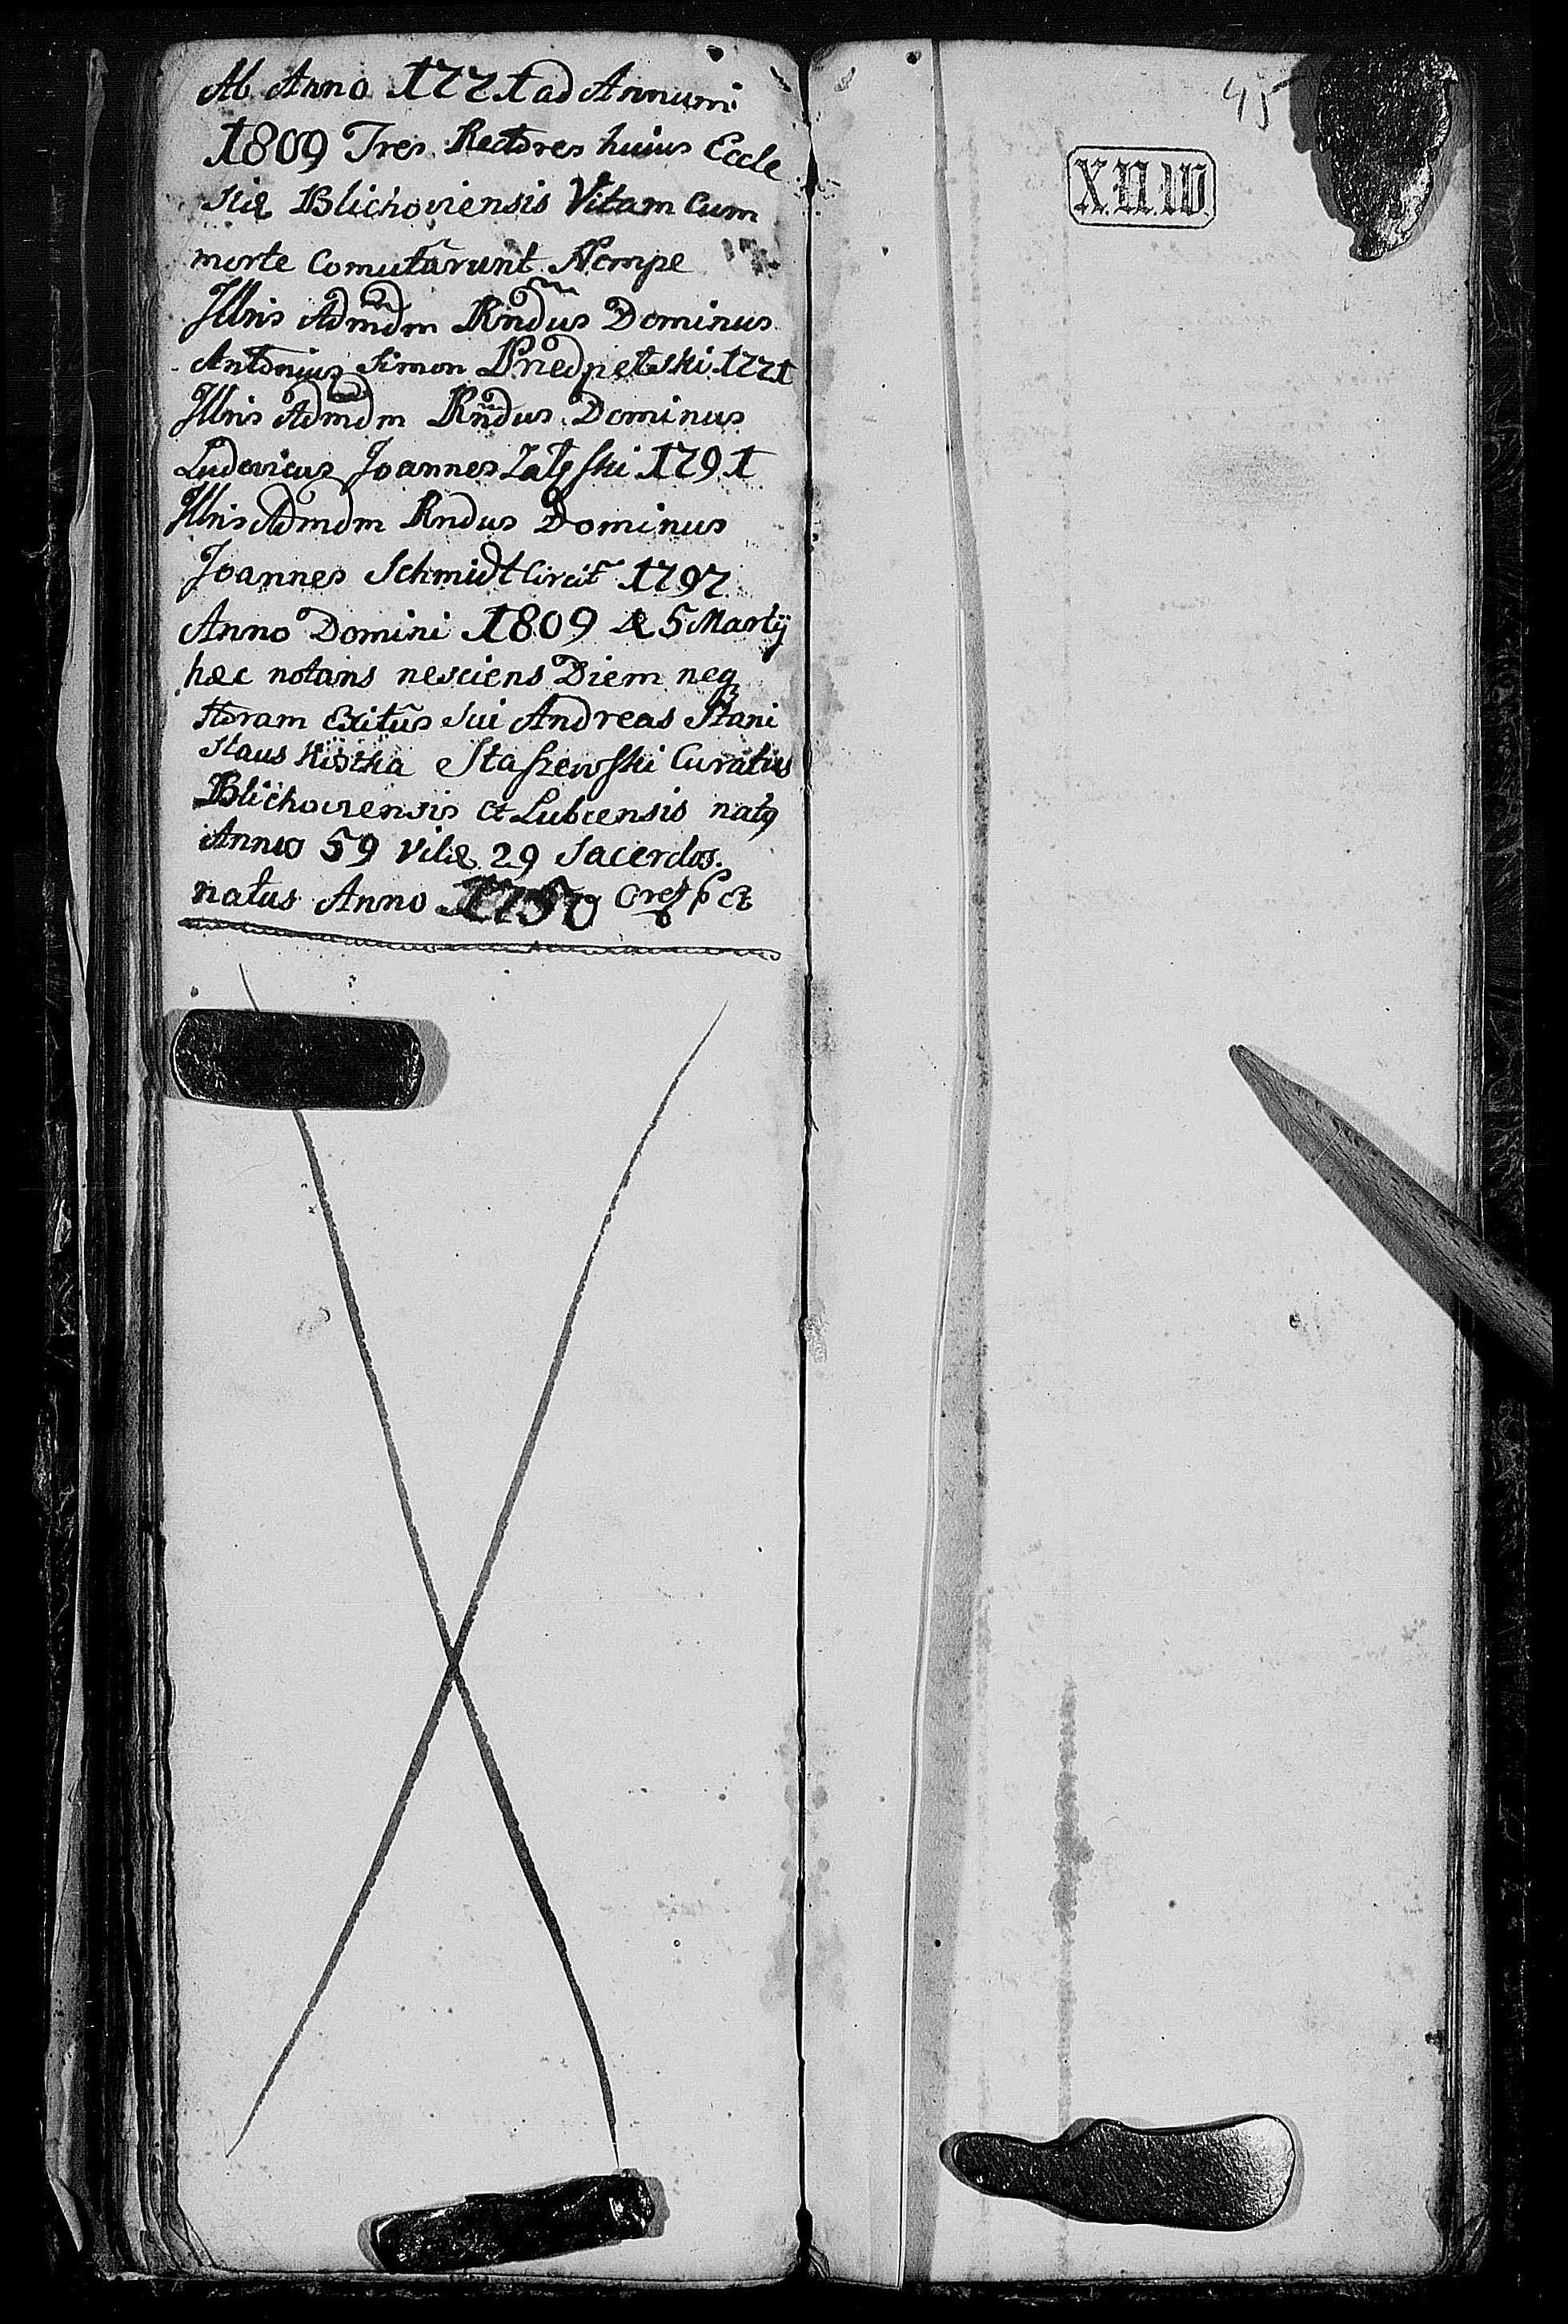 Ab Anno 1771 ad Annum
1809 Tres Rectores huius Eccle
siæ Blichoviensis Vitam Cum
morte Comutarunt Nempe
Jllris Admdm Rndus Dominus
Antonius Simon 1771
Jllris Admdm Rndus Dominus
Ludovicus Joannes 1791
Jllris Admdm Rndus Dominus
Joannes Schmidt Circit 1797
Anno Domini 1809 5 Martÿ
hæc notans nesciens Diem neq
Horam Exitus sui Andreas Stani
slaus Kostka Staszewski Curatus
Blichoviensis et Lubiensis
Anno 59 Vitæ 29 Sacerdos.
natus Anno 1750
45
X.II.10.